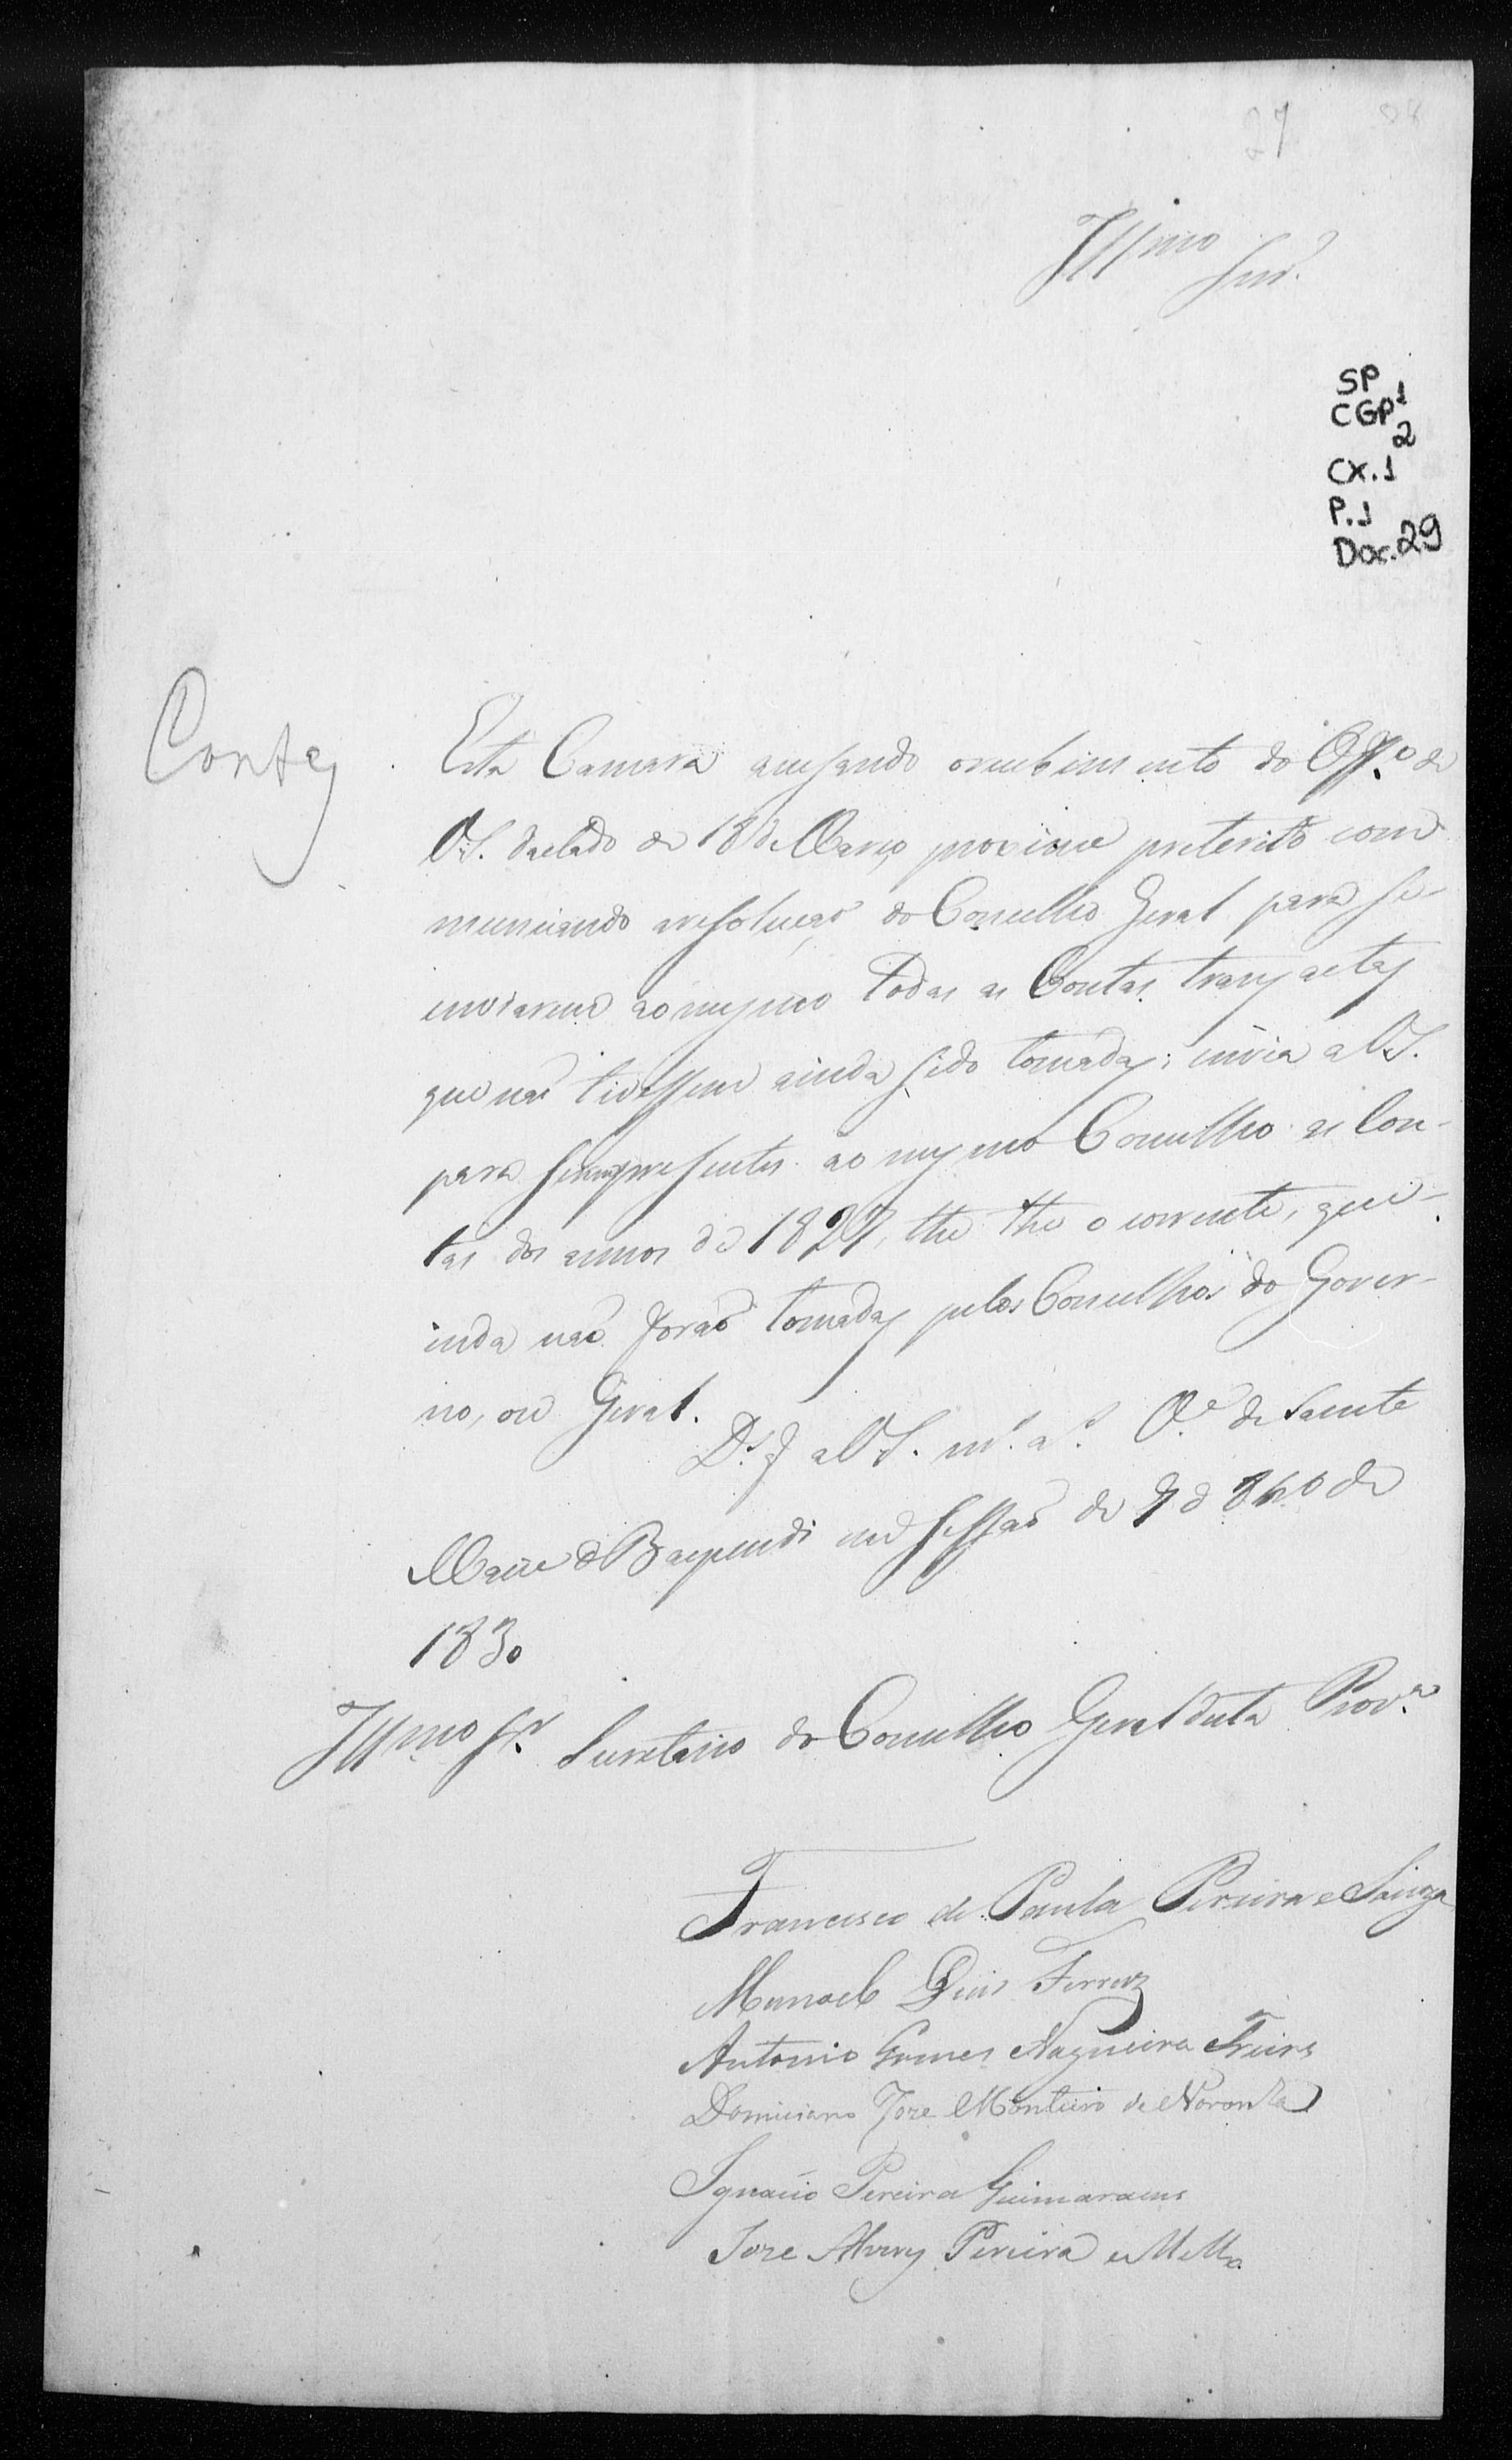 27
Illmo Snr.
SP
CGP 1
2
Cx.1
P.1
Doc.29
Contas
Esta Camara accusando orecebimento do Offo. de
V.S. dactado de 18 de Março proximo preterito com
municando aresoluçaõ do Concelho Geral para se
enviarem ao mesmo todas as Contas transactas
que naõ tivessem ainda sido tomadas; invia a V.S.
para serem presentes ao mesmo Concelho as Con-
tas dos annos de 1827, the o corrente, que
inda naõ foraõ tomadas pelos Concelhos do Gover-
no, ou Geral.
Ds. G. a V.S. ms. as. Va. de Santa
Maria de Baependi em Sessaõ de 7 de 8bro de
1830
Illmo Sr. Secretario do Concelho Geral desta Prova.
Francisco de Paula Pereira e Souza
Manoel Dias Ferraz
Antonio Gomes Nogueira Freire
Domiciano Joze Monteiro de Noronha
Ignacio Pereira Guimaraens
Joze Alves Pereira e Mello